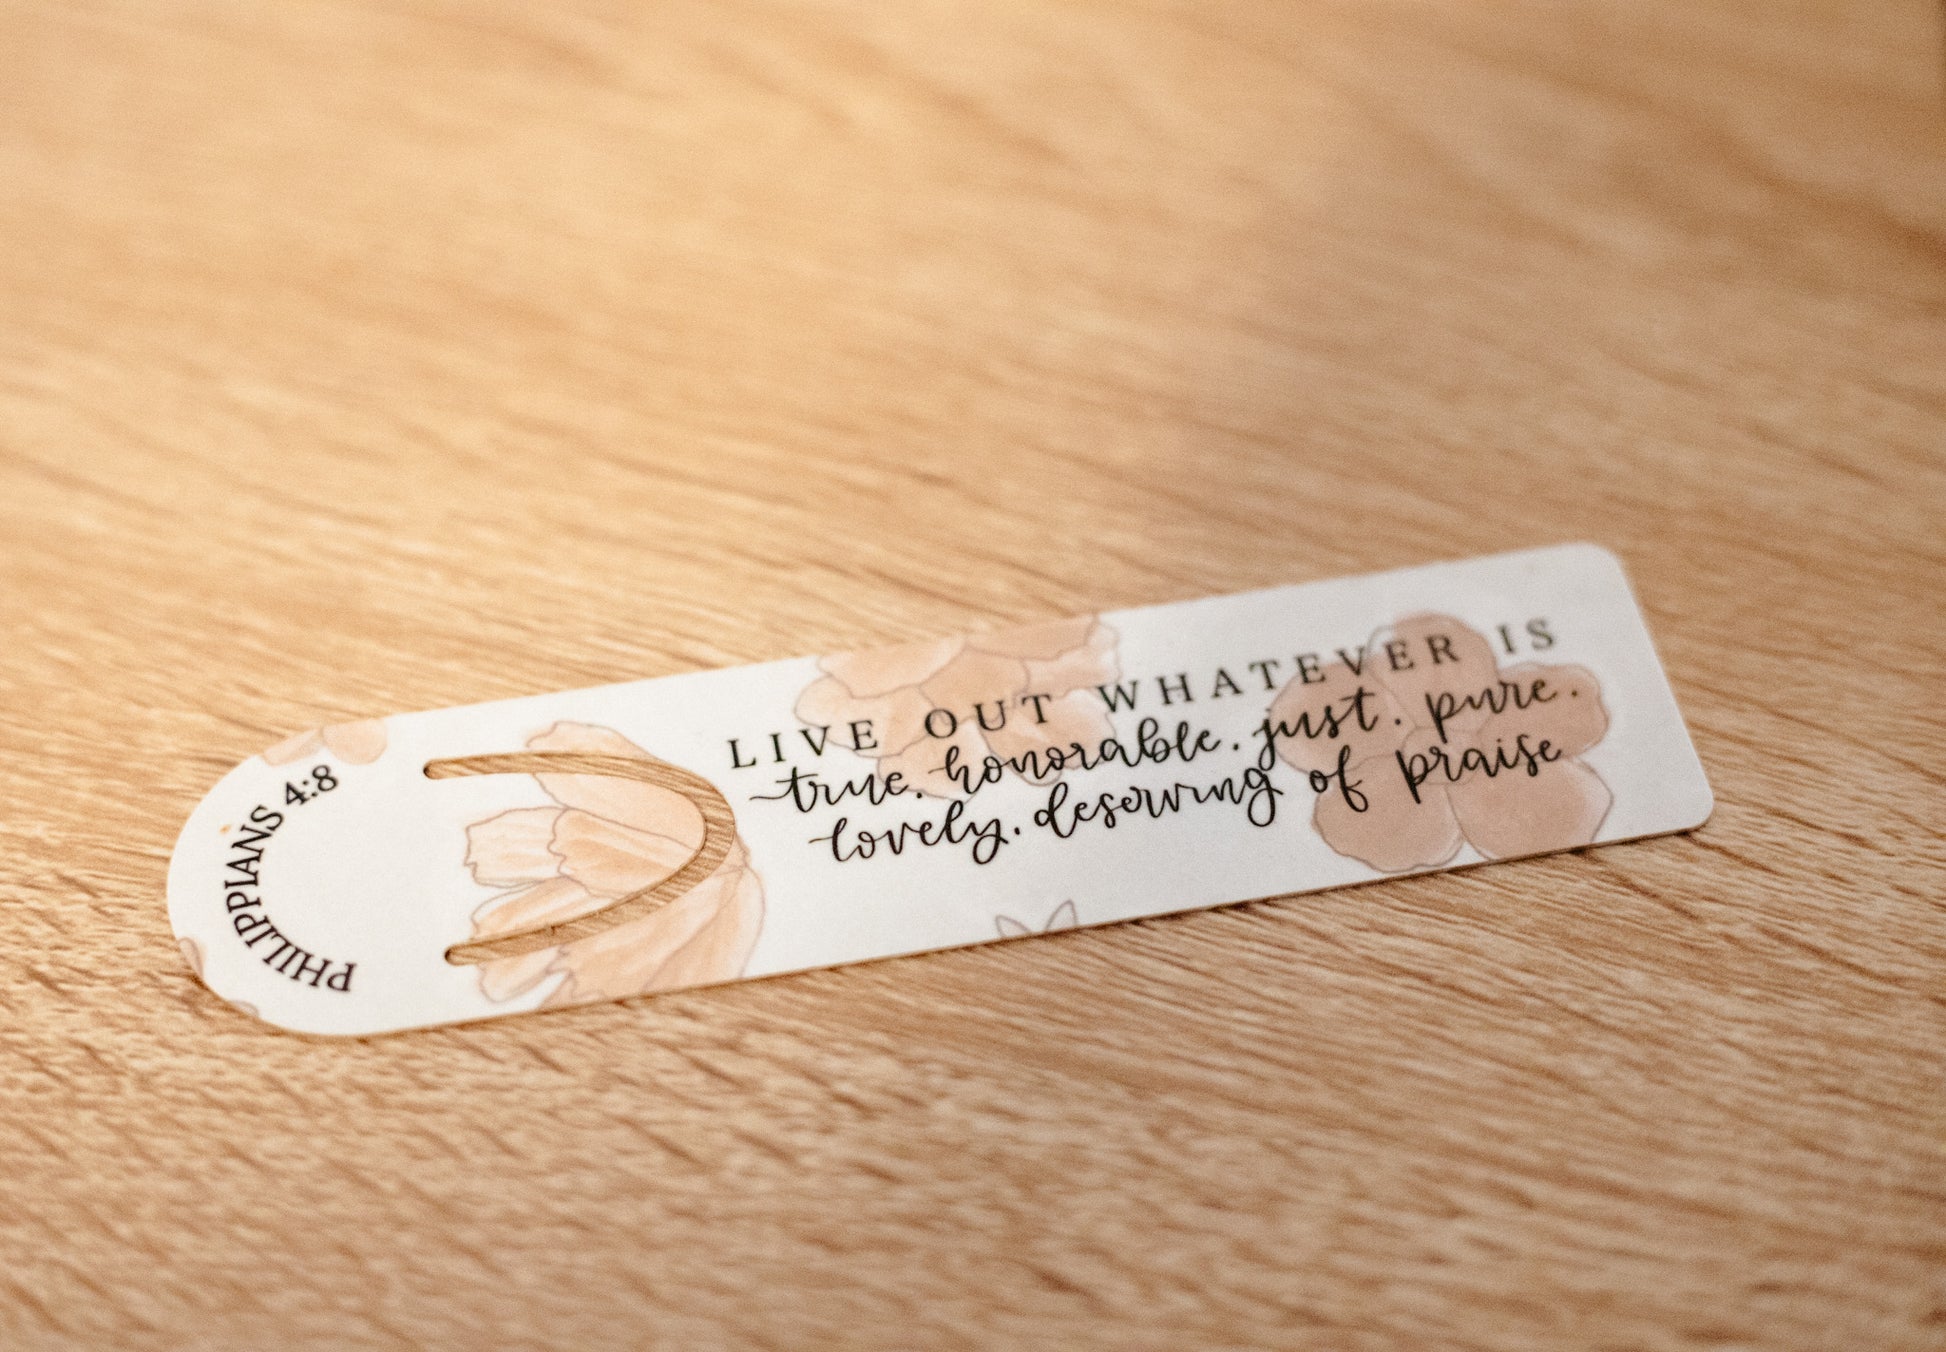 PHILIPPIANS 4:8
LIVE OUT WHATEVER IS
true. honorable. just. pure.
lovely. deserving of praise